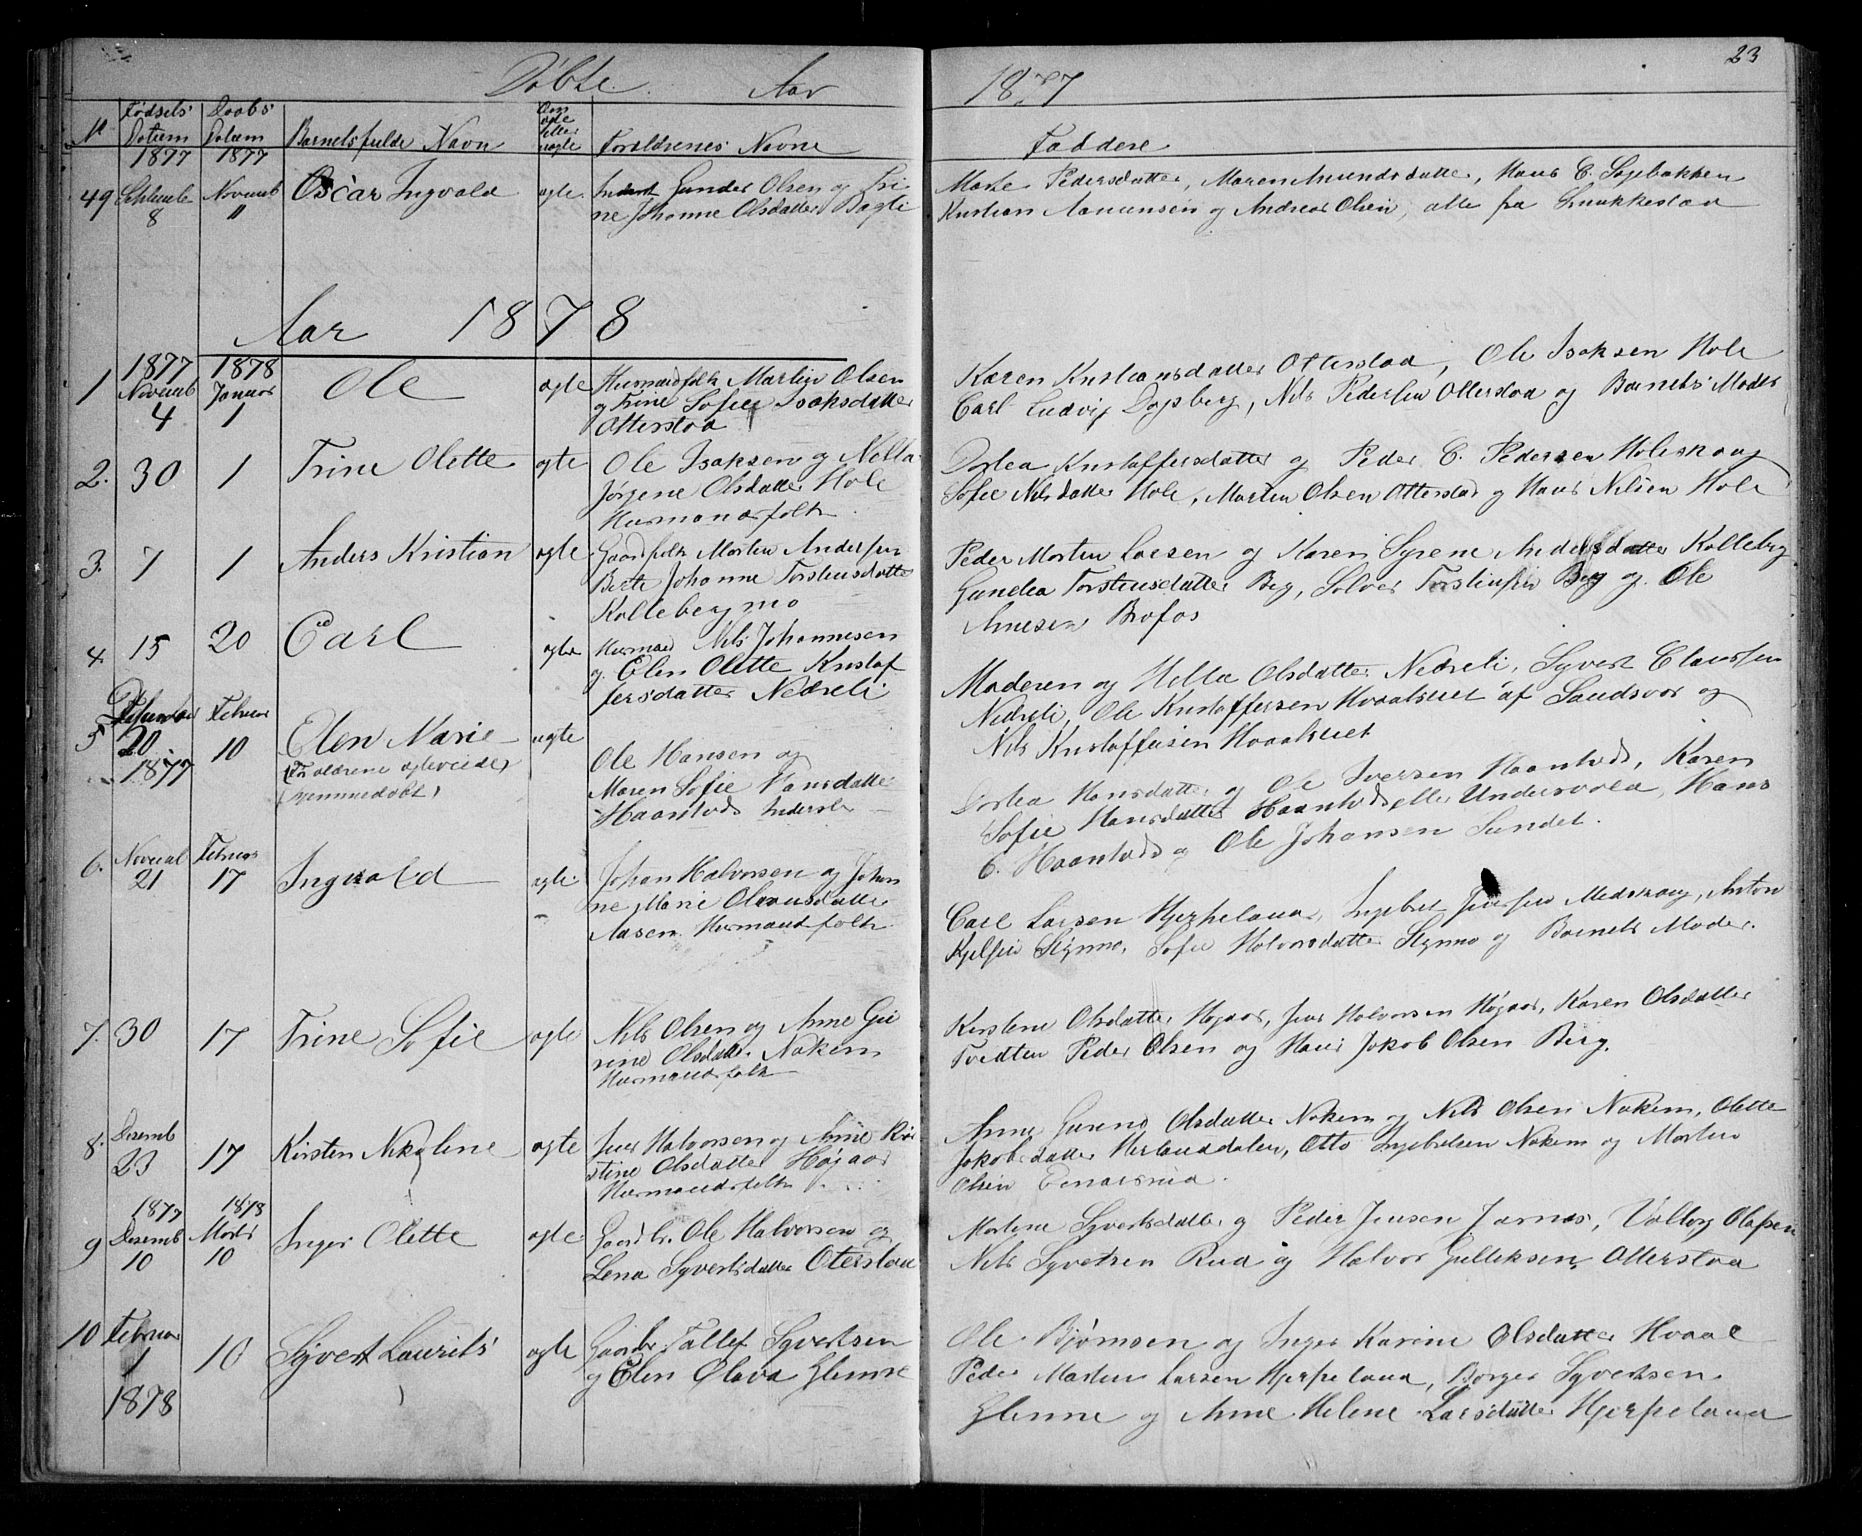 Døbte Aar 1877
23
N Fødsels Datum Daabs Datum Barnets fulde Navn Om ægte eller uægte Forældrenes Navne Faddere
1877 1877
49 Septemb 8 Novemb 11 Oscar Ingvald ægte Gunder Olsen og Tri
ne Johanne Olsdatter
Marte Pedersdatter, Maren Amundsdatter, Hans C. Sagbakken
Kristian Aamunsen og Andreas Olsen, alle fra Snukkestad
Aar 1878
1877 1878
1 Novemb 4 Januar 1 Ole ægte Husmandfolk Martin Olsen
og Trine Sofie Isaksdatter
Otterstad
Karen Kristiansdatter Otterstad, Ole Isaksen Hole
Carl Ludvig Dagsberg, Nils Pedersen Otterstad og Barnets Moder
2. 30 1 Trine Olette ægte Ole Isaksen og Nella
Jørgene Olsdatter Hole
Husmandsfolk
Dortea Kristoffersdatter og Peder C. Pedersen Holeskaug
Sofie Nilsdatter Hole, Martin Olsen Otterstad og Hans Nilsen Hole
3. 7 1 Anders Kristian ægte Gaardfolk Morten Andersen
Berte Johanne Torstensdatter
Kollebergmo
Peder Morten Larsen og Karen Syrene Andersdatter Kolleberg
Gundea Torstensdatter Beg, Solver Torstensen Beg og Ole
Anesen Brofos
4. 15 20 Carl ægte Husmand Nils Johannesen
og Elen Olette Kristof
fersdatter Nedreli
Moderen og Hella Olsdatter Nedreli, Syvert Claussen
Nedreli, Ole Kristoffersen Hvaalsroet af Sandsvær og
Nils Kristoffersen Hvaalsroet
5 Desember 20 1877 Februar 10 Elen Marie uægte
(Forældrene egteviede)
(hjemmedøbt)
Ole Hansen og
Maren Sofie Hansdatter
Haanlvds
Dortea Hansdatter og Ole Iversen Haanlvds, Karen
Sofie Hansdatter Haanlvds eller Undersvola, Hans
C. Haanlvds og Ole Johansen Sundet.
6. Novemb 21 Februar 17 Ingvald ægte Johan Halvorsen og Johan
ne Marie Olausdatter
Aasen Husmandsfolk
Carl Larsen Hjerpeland, Ingebret Iversen Medskaug, Anton
Kjelsen Stynno, Sofie Halvorsdatter Stynno og Barnets Moder.
7. 30 17 Trine Sofie ægte Nils Olsen og Anne Gu
rine Olsdatter Nakem
Husmandsfolk
Kirstene Olsdatter Høgaar, Iver Halvorsen Høgaar, Karen Olsdatter
Tvedten Peder Olsen og Hans Jakob Olsen Berg.
8. Desemb 23 17 Kirsten Nikoline ægte Iver Halvorsen og Anne Kir
stine Olsdatter Høgaar
Husmandsfolk
Anne Gurene Olsdatter Nakem og Nils Olsen Nakem, Olette
Jakobsdatter Herlanddalen, Otto Ingebretsen Nakem og Morten
Olsen
1877 1878
9 Desemb 10 Marts 10 Inger Olette ægte Gaardbr. Ole Halvorsen og
Lena Syvertsdatter Oterstad
Martene Syvertsdatter og Peder Jensen Jarnæs, Valborg Olasen
Nils Syvertsen Rua og Halvor Gulleksen Otterstad
10 Februar 1 1878 10 Syvert Laurits ægte Gaardbr. Tallef Syvertsen
og Elen Olava Glenne
Ole Bjørnsen og Inger Karine Olsdatter Hvaal
Peder Morten Larsen Hjerpeland, Borger Syvertsen
Glenne og Anne Helene Larsdatter Hjerpeland